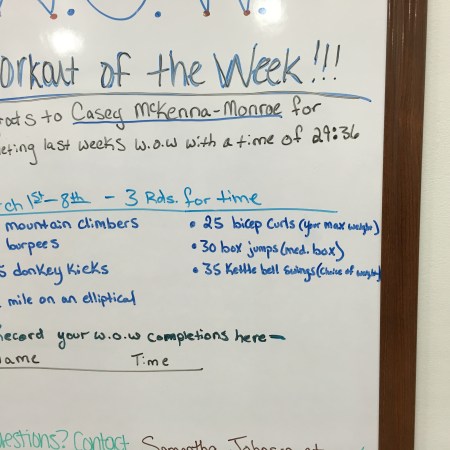 W.O.W.
orkout of the Week!!!
rats to Casey McKenna-Monroe for
eting last weeks w.o.w with a time of 29:36
ch 1st-8th - 3 Rds. for time
mountain climbers
burpees
5 donkey kicks
mile on an elliptical
• 25 bicep curls (your max weight)
• 30 box jumps (med. box)
• 35 Kettle bell swings (choice of weight)
ecord your w.o.w completions here-
ame Time
uestions? Contact Samantha Johnson at